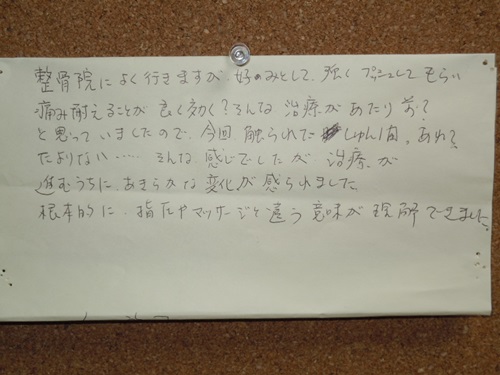 整骨院によく行きますが、好のみとして、強くプッシュしてもらい
痛み耐えることが良く効く?そんな治療があたり前?
と思っていましたので、今回触られたしゅん間。あれ?
たよりない……そんな感じでしたが、治療が
進むうちに、あきらかな変化が感られました。
根本的に、指圧やマッサージと違う意味が理解できました。